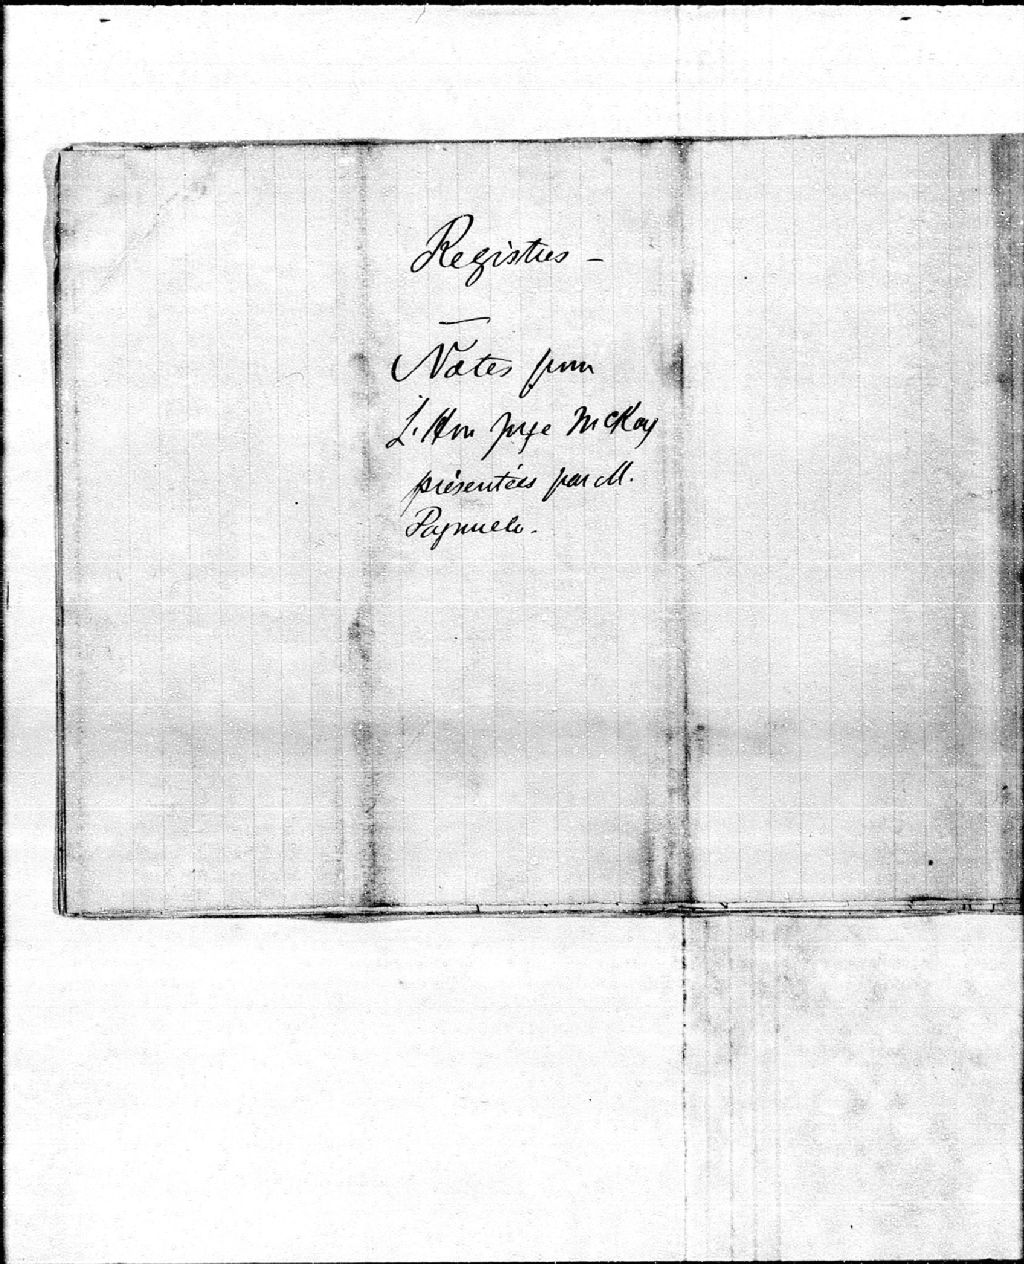 Registres -
Notes pour
L'Hon juge McKay
présentées par M.
Pagnuelo.